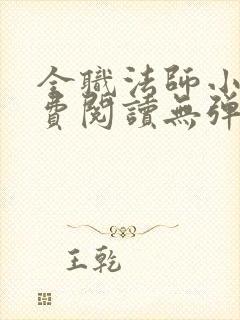 全職法師小
費閱讀無彈
王乾